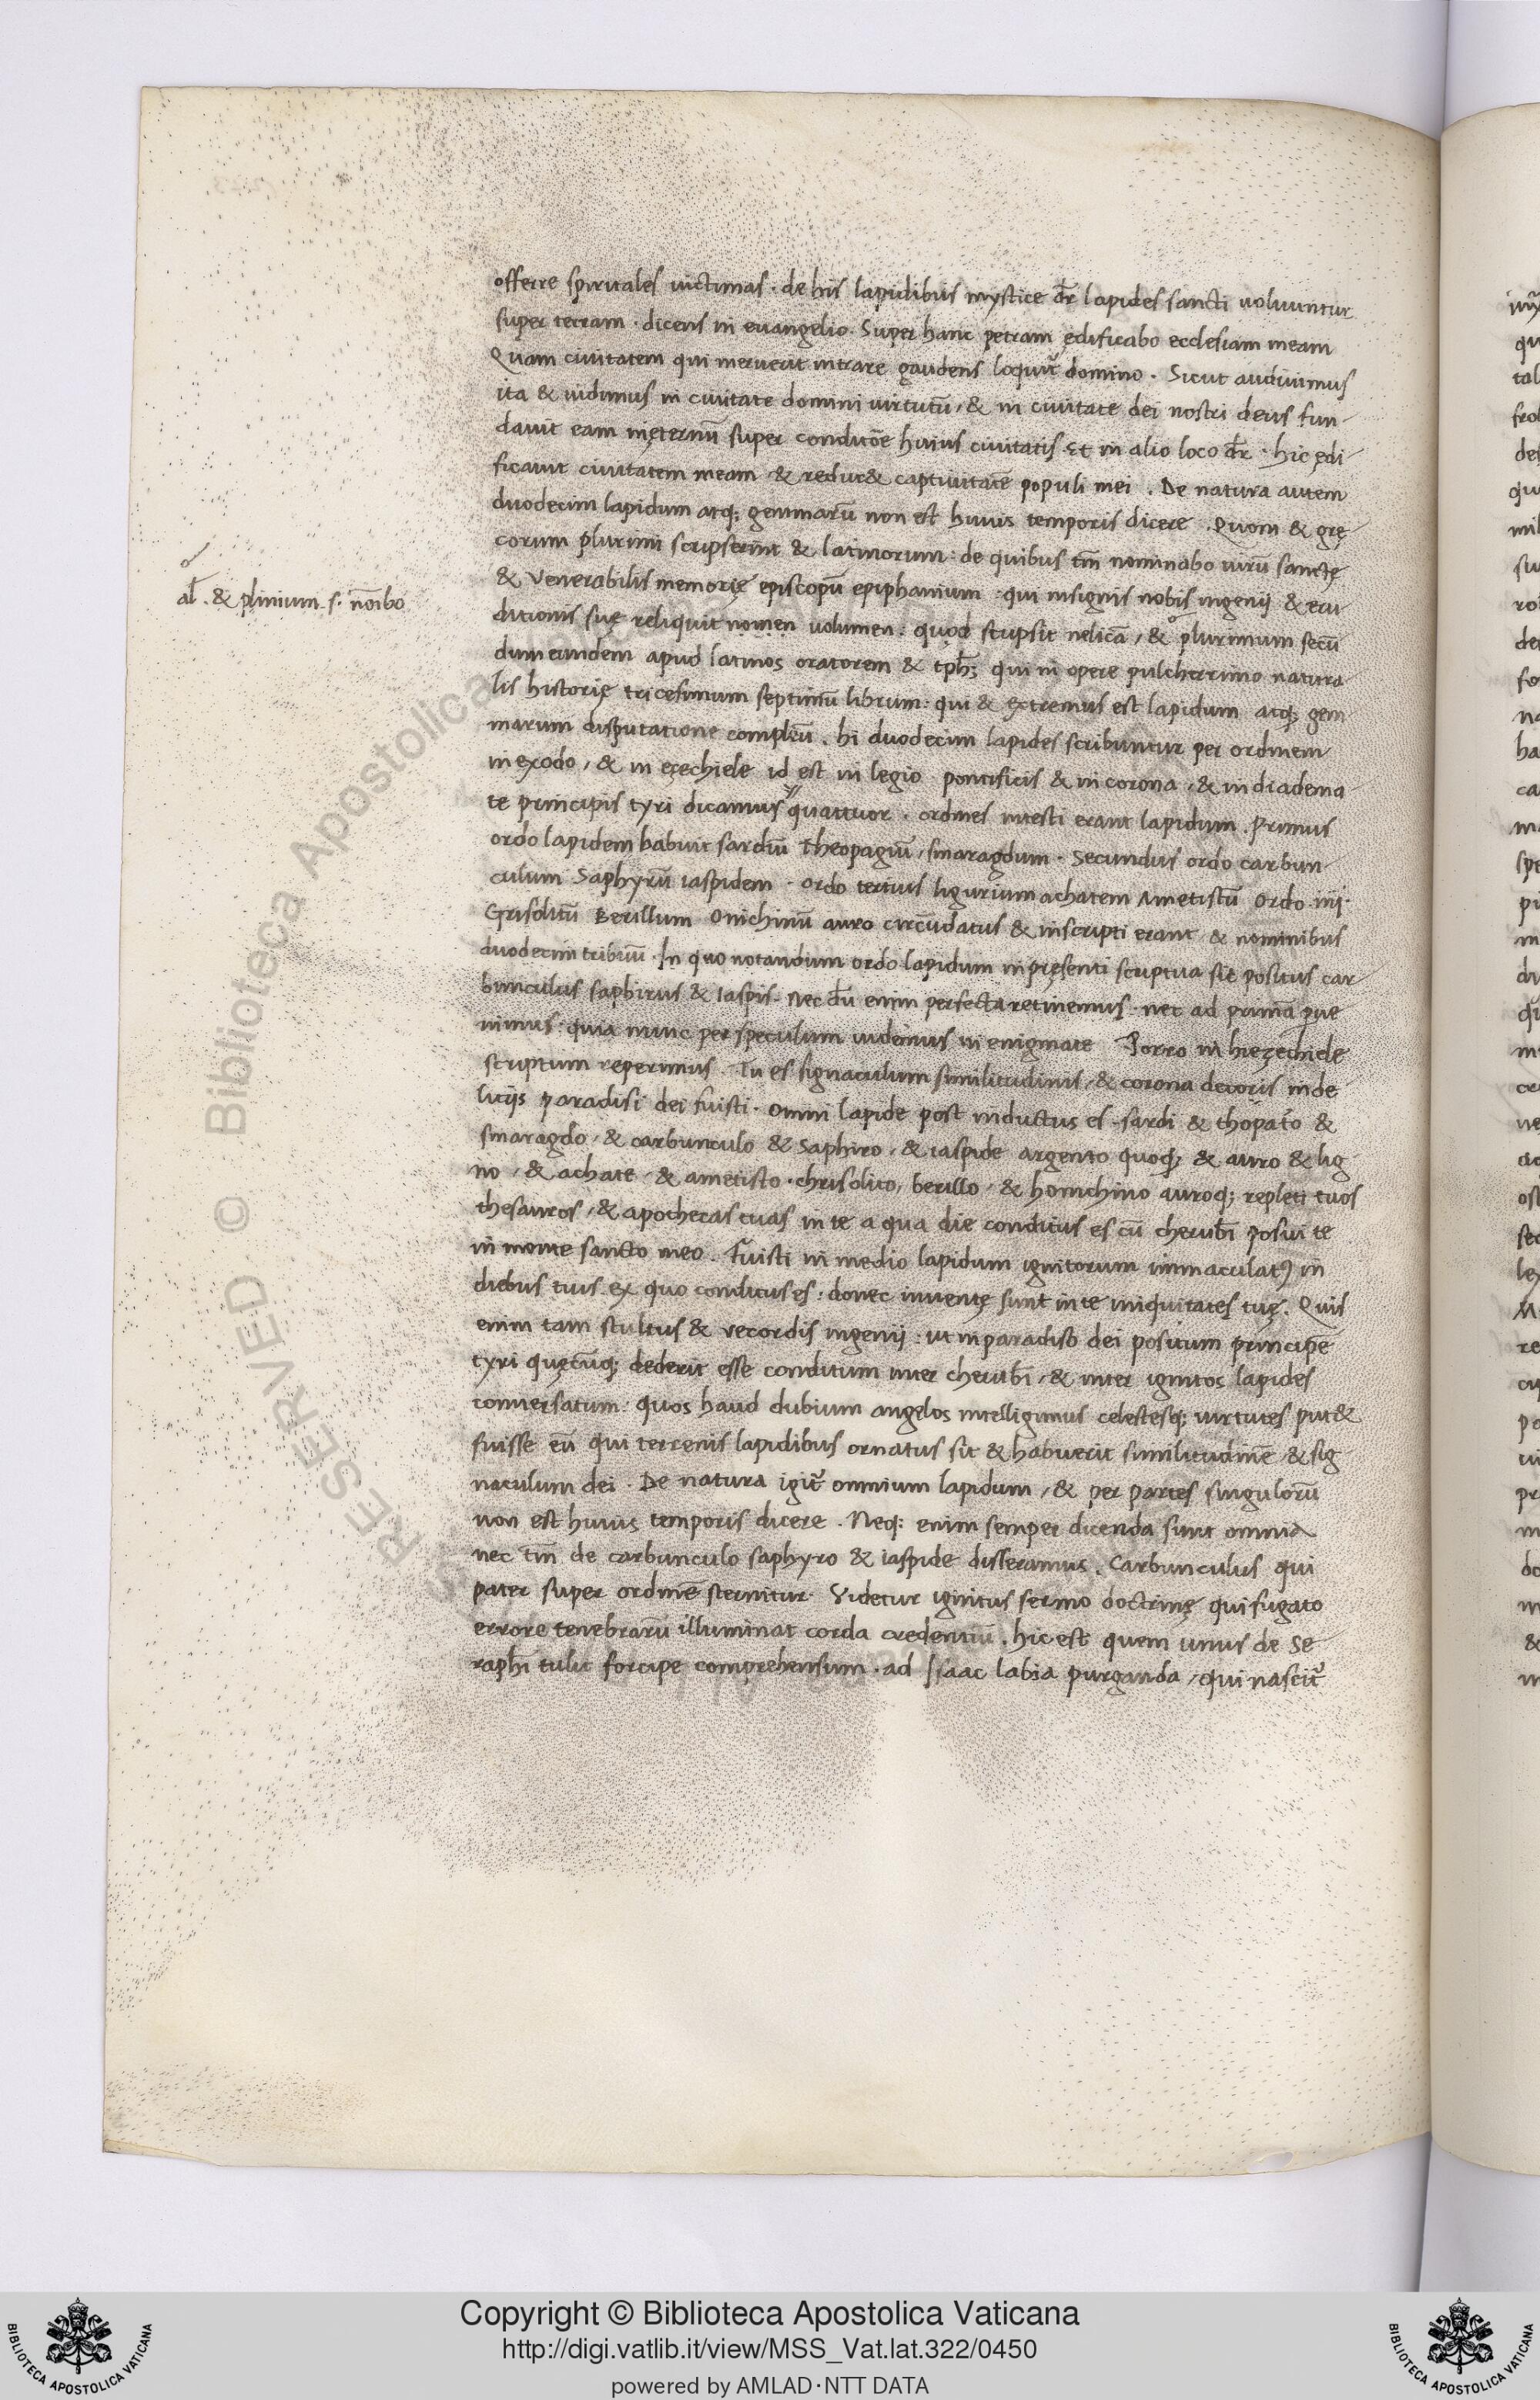 offerre spiritales victimas · de his lapidibus mystice dr̄ lapides sancti voluuntur
super terram · dicens in euangelio · Super hanc petram ędificabo ecclesiam meam
Quam ciuitatem qui meruerit intrare gaudens loquit᷑ domino · Sicut audiuimus
ita & uidimus in ciuitate domini uirtutū, & in ciuitate dei nostri deus fun-
dauit eam inęternū super conditōe huius ciuitatis Et in alio loco dr̄ · hic ędi-
ficauit ciuitatem meam & reduc& captiuitatē populi mei . De natura autem
duodecim lapidum atq; gemmarū non est huius temporis dicere . Quom & grę
corum plurimi scripserint & latinorum : de quibus tm̄ nominabo uirū sanctę
& Venerabilis memorię episcopū epiphanium : qui insignis nobis ingenij & eru-
al̄ . & plinium . s . noībo
ditionis suę reliquit nomen uolumen : quod scripsit nelicā, & plurimum secū
dum eundem apud latinos oratorem & tph̄; qui in opere pulcherrimo natura-
lis historię tricesimum septimū librum : qui & extremus est lapidum atq; gem
marum disputatione compleū . hi duodecim lapides scribuntur per ordinem
in exodo, & in ezechiele id est in legio pontificis & in corona, & in diadema-
te principis tyri dicamus quattuor · ordines intesti erant lapidum . Primus
ordo lapidem habuit sardiū theopagiū, smaragdum · Secundus ordo carbun-
culum Saphyrū iaspidem · ordo tertius ligurium achatem Ametistū Ordo iiij·
Grisolitū Berillum Onichinū auro circūdatus & inscripti erant & nominibus
duodecim tribuū · In quo notandum ordo lapidum in pręsenti scriptura sit positus car-
bunculus saphirus & Iaspis · Nec dū enim perfecta retinemus · nec ad primā pue
nimus : quia nunc per speculum uidemus in enigmate Porro in hiezechiele
scriptum reperimus . Tu es signaculum similitudinis, & corona decoris in de-
litijs paradisi dei fuisti · omni lapide post inductus es · sardi & thopato &
smaragdo, & carbunculo & Saphiro, & iaspide argento quoq; & auro & lig
no, & achate, & ametisto · chrisolito, berillo, & honichino auroq; repleti tuos
thesauros, & apothecas tuas in te a qua die conditus es cū cherubī posui te
in monte sancto meo . Fuisti in medio lapidum ignitorum immaculatꝰ in
diebus tuis ex quo conditus es : donec inuentę sunt in te iniquitates tuę . Quis
enim tam stultus & vecordis ingenij : ut in paradiso dei positum principē
tyri quęcūq; dederit esse conditum inter cherubī, & inter ignitos lapides
conuersatum : quos haud dubium angelos intelligimus celestesq; uirtutes put&
fuisse eū qui terrenis lapidibus ornatus sit & habuerit similitudinē & sig
naculum dei · De natura igit᷑ omnium lapidum, & per partes singulorū
non est huius temporis dicere . Neq; enim semper dicenda sunt omnia
nec tm̄ de carbunculo saphyro & iaspide disseramus . Carbunculus qui
pater super ordinē sternitur · Videtur ignitus sermo doctrinę qui fugato
errore tenebrarū illuminat corda credentiū . hic est quem unus de Se
raphī tulit forcipe comprehensum · ad Isaac labia purganda, qui nascit᷑